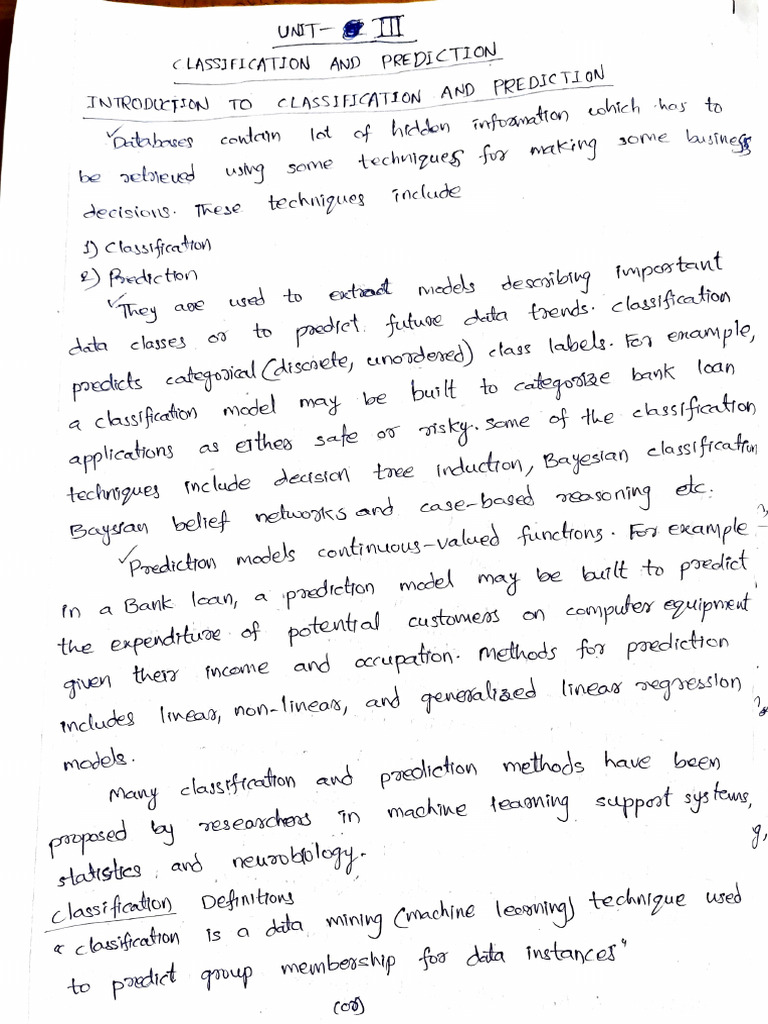 1
UNIT- III
CLASSIFICATION AND PREDICTION
INTRODUCTION TO CLASSIFICATION AND PREDICTION
✓Databases contain lot of hidden information which has to
be retrieved using some techniques for making some business
decisions. These techniques include
1) Classification
2) Prediction
✓They are used to extract models describing important
data classes or to predict future data trends. classification
predicts categorical (discrete, unordered) class labels. For example,
a classification model may be built to categorize bank loan
applications as either safe or risky. some of the classification
techniques include decision tree induction, Bayesian classification
Baysian belief networks and case-based reasoning etc.
✓Prediction models continuous-valued functions. For example
in a Bank loan, a prediction model may be built to predict
the expenditure of potential customers on computer equipment
given their income and occupation. methods for prediction
includes linear, non-linear, and generalized linear regression
models.
Many classification and prediction methods have been
proposed by researchers in machine learning support systems,
statistics and neurobiology.
Classification Definitions
“ classification is a data mining (machine learning) technique used
to predict group membership for data instances”
(or)